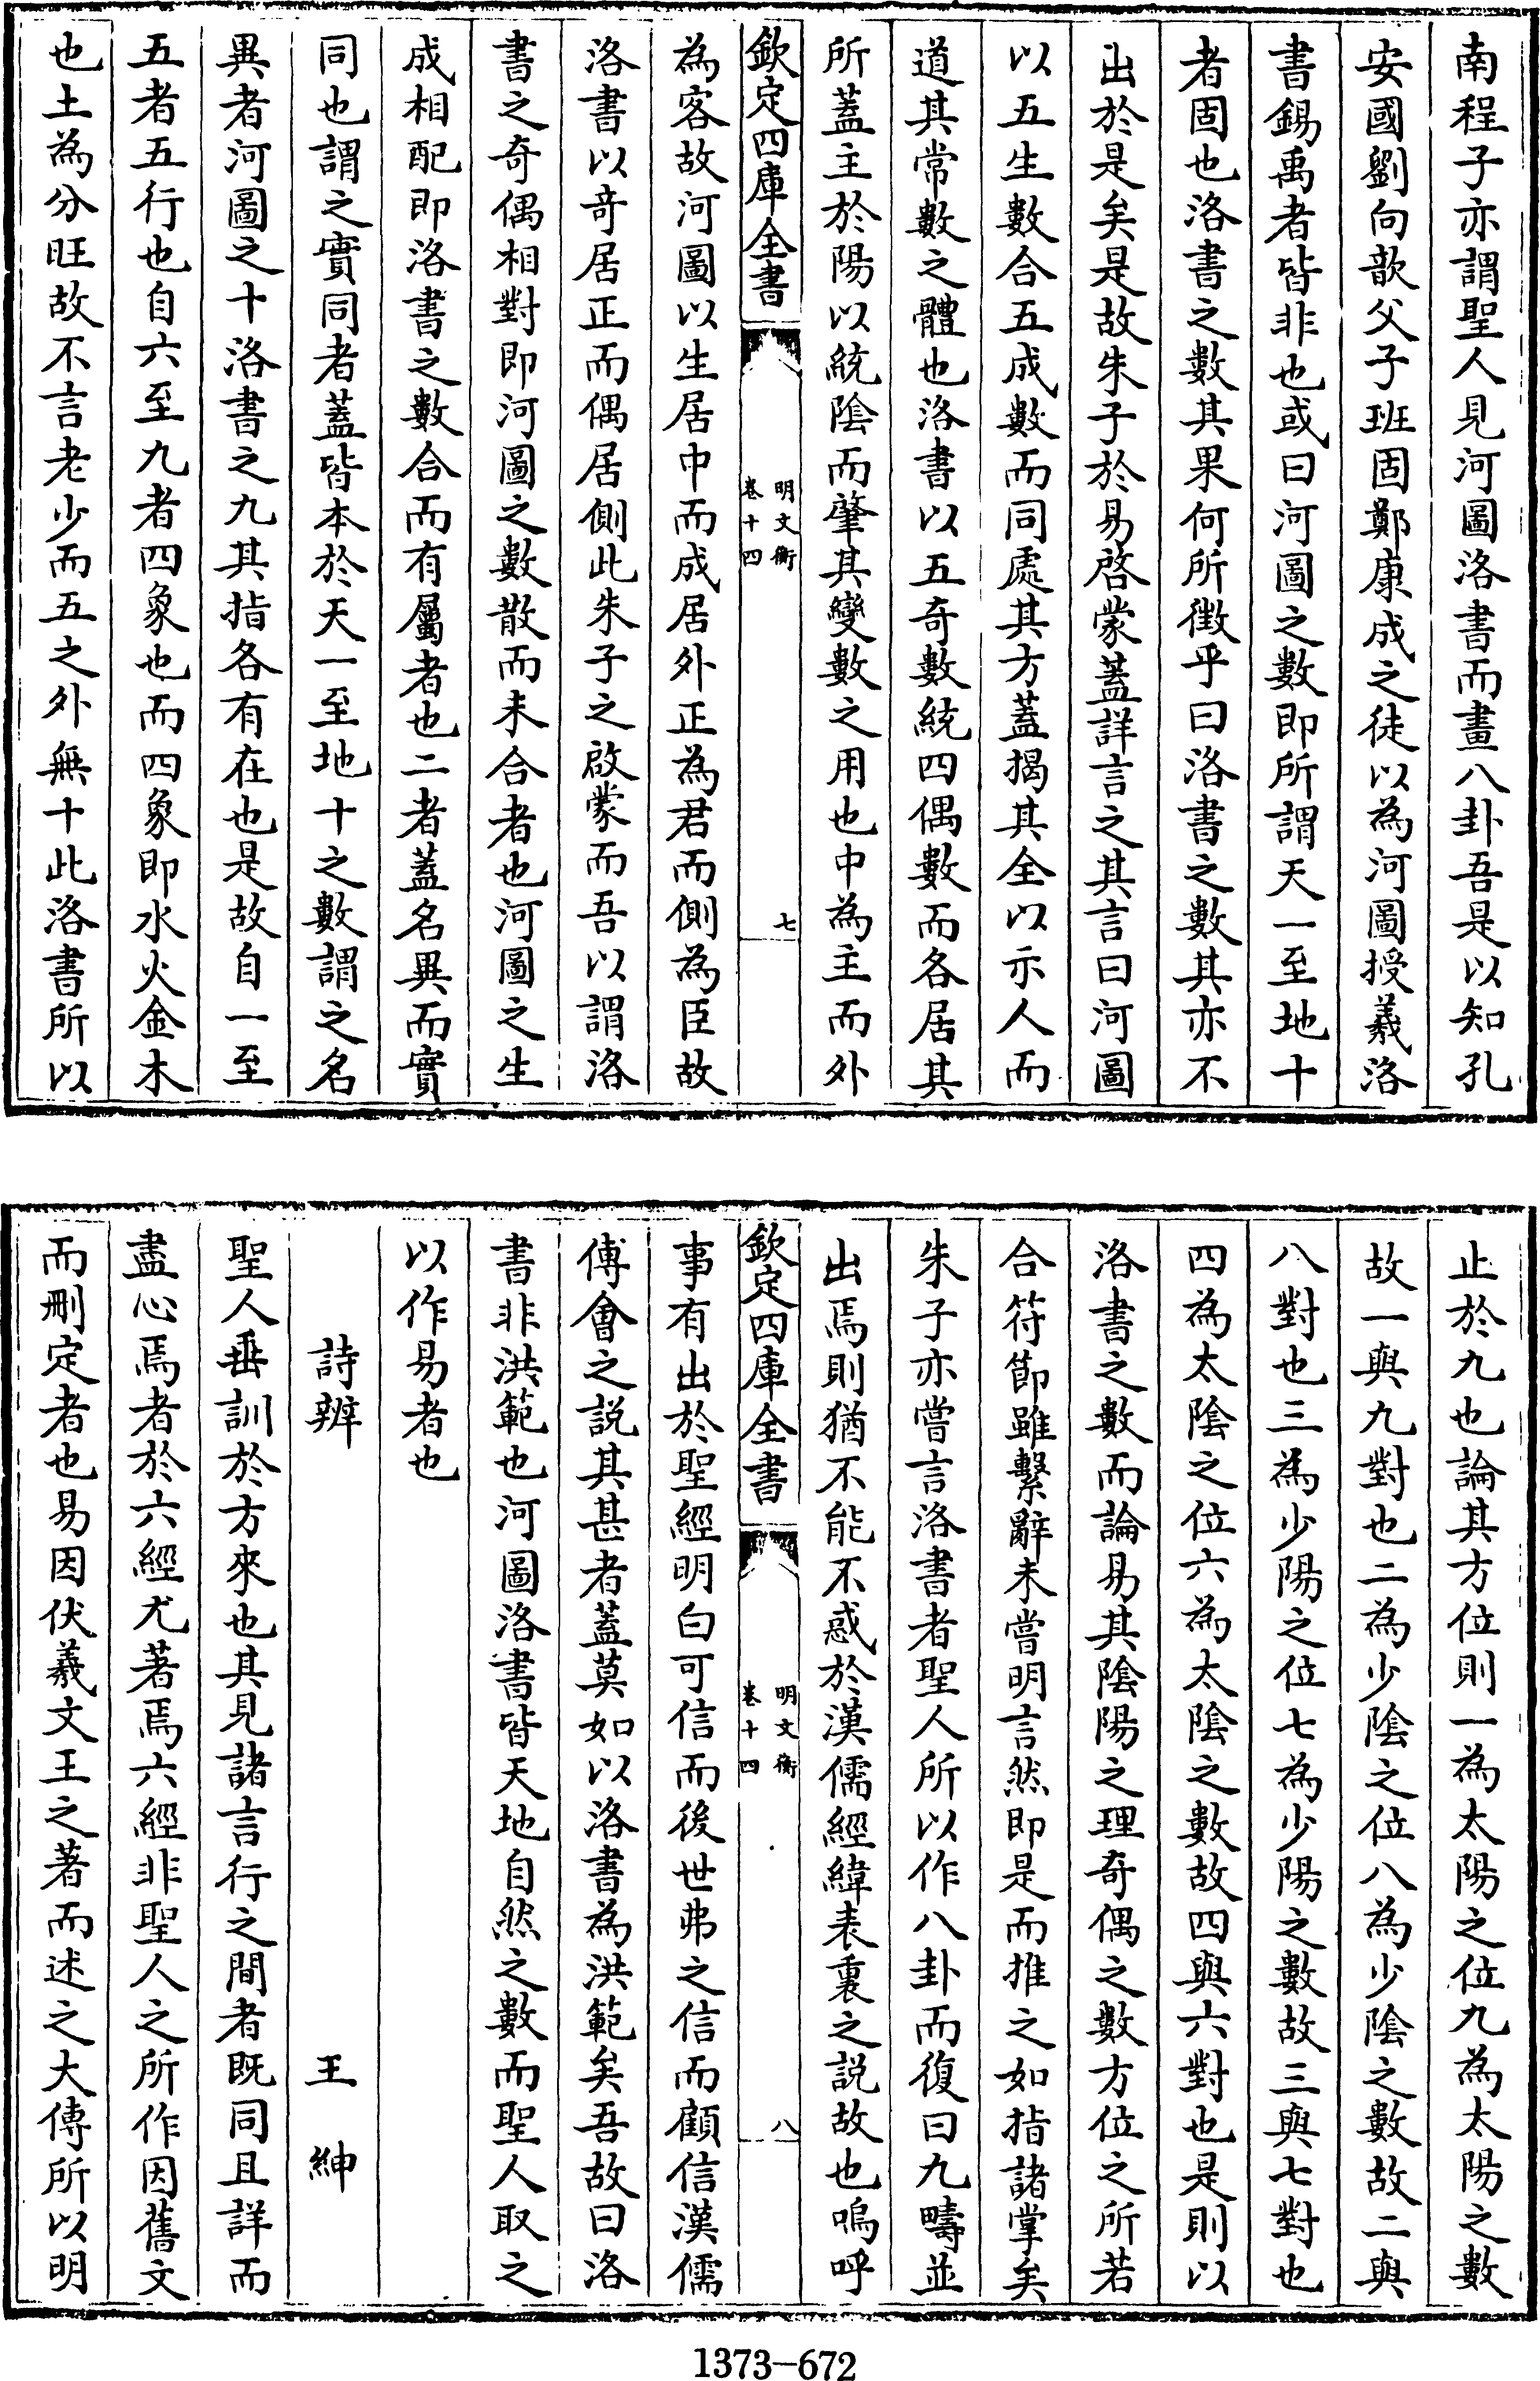 南程子亦謂聖人見河圖洛書而畫八卦吾是以知孔
安國劉向歆父子班固鄭康成之徒以為河圖授羲洛
書錫禹者皆非也或曰河圖之數即所謂天一至地十
者固也洛書之數其果何所徵乎曰洛書之數其亦不
出於是矣是故朱子於易啓蒙蓋詳言之其言曰河圖
以五生數合五成數而同處其方蓋揭其全以示人而
道其常數之體也洛書以五奇數統四偶數而各居其
所蓋主於陽以統陰而肇其變數之用也中為主而外
欽定四庫全書
明文衡
卷十四
七
為客故河圖以生居中而成居外正為君而側為臣故
洛書以奇居正而偶居側此朱子之啟蒙而吾以謂洛
書之奇偶相對即河圖之數散而未合者也河圖之生
成相配即洛書之數合而有屬者也二者蓋名異而實
同也謂之實同者蓋皆本於天一至地十之數謂之名
異者河圖之十洛書之九其指各有在也是故自一至
五者五行也自六至九者四象也而四象即水火金木
也土為分旺故不言老少而五之外無十此洛書所以
止於九也論其方位則一為太陽之位九為太陽之數
故一與九對也二為少陰之位八為少陰之數故二與
八對也三為少陽之位七為少陽之數故三與七對也
四為太陰之位六為太陰之數故四與六對也是則以
洛書之數而論易其陰陽之理奇偶之數方位之所若
合符節雖繫辭未嘗明言然即是而推之如指諸掌矣
朱子亦嘗言洛書者聖人所以作八卦而復曰九疇並
出焉則猶不能不惑於漢儒經緯表裏之說故也嗚呼
欽定四庫全書
明文衡
卷十四
八
事有出於聖經明白可信而後世弗之信而顧信漢儒
傅會之說其甚者蓋莫如以洛書為洪範矣吾故曰洛
書非洪範也河圖洛書皆天地自然之數而聖人取之
以作易者也
詩辨 王紳
聖人垂訓於方來也其見諸言行之間者既同且詳而
盡心焉者於六經尤著焉六經非聖人之所作因舊文
而刪定者也易因伏羲文王之著而述之大傳所以明
1373-672